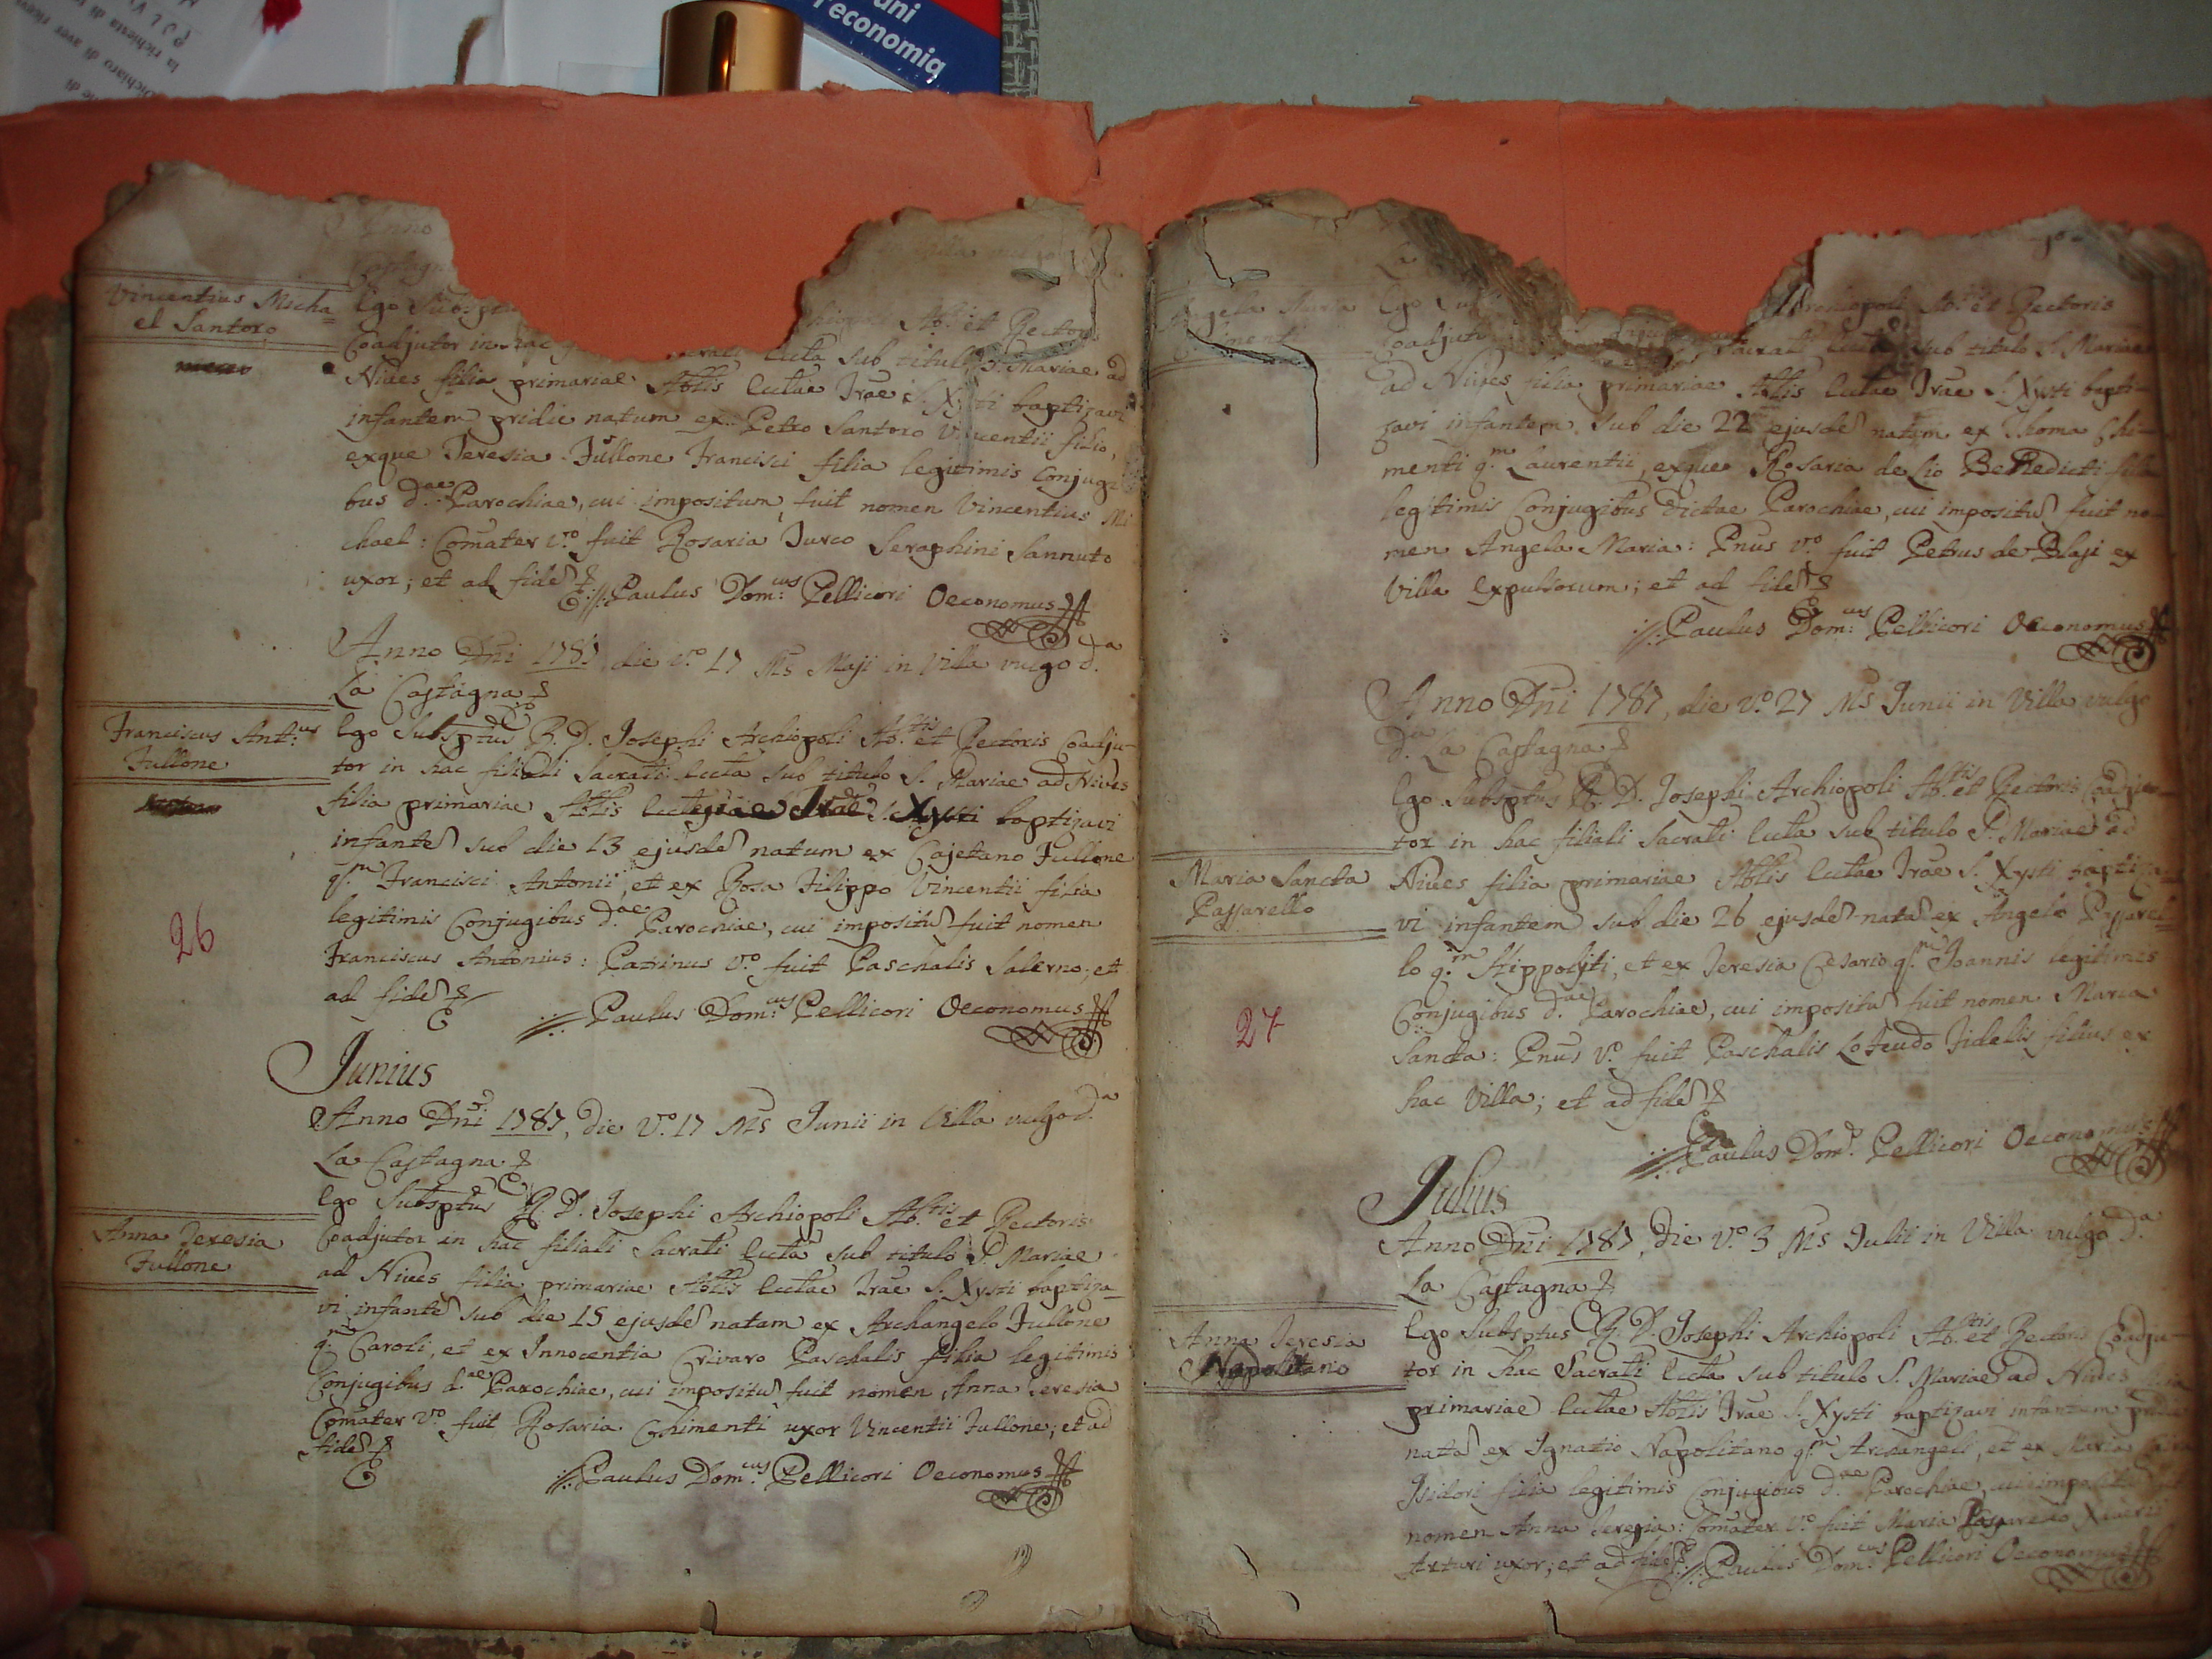 uni
l'economia
Anno
Castagn
Vincentius Micha=
el Santoro
Ego Subsptus
Ab.tis et Rectoris
Coadjutor in hac
Sacrati Eccta sub titulo S. Mariae ad
Nives filia primariae Abtis Ecctae Trae S. Xysti baptizavi
infantem pridie natum ex Petro Santoro Vincentii filio,
exque Teresia Fullone Francisci filia legitimis Conjugi
bus d.ae Parochiae, cui impositum fuit nomen Vincentius Mi
chael: Comater v.o fuit Rosaria Turco Seraphini Sannuto
uxor; et ad fidē
Paulus Dom:cus Pellicori Oeconomus
Anno Dni 1787 die v.o 17 Ms Maji in Villa vulgo d.a
La Castagna
Franciscus Ant:us
Fullone
Ego Subsptus R. D. Josephi Archiopoli Ab.tis et Rectoris Coadju-
tor in hac filiali Sacrati Eccta sub titulo S. Mariae ad Nives
filia primariae Abtis Trae S. Xysti baptizavi
infantē sub die 13 ejusdē natum ex Cajetano Fullone
q.m Francisci Antonii, et ex Rosa Filippo Vincentii filia
legitimis Conjugibus d.ae Parochiae, cui impositū fuit nomen
Franciscus Antonius: Patrinus v.o fuit Paschalis Salerno; et
ad fidē
26
Paulus Dom:cus Pellicori Oeconomus
Junius
Anno Dni 1787, die v.o 17 Ms Junii in Villa vulgo d.a
La Castagna
Anna Teresia
Fullone
Ego Subsptus R. D. Josephi Archiopoli Ab.tis et Rectoris
Coadjutor in hac filiali Sacrati Eccta sub titulo S. Mariae
ad Nives filia primariae Abtis Ecctae Trae S. Xysti baptiza-
vi infantē sub die 15 ejusdē natam ex Archangelo Fullone
q.m Caroli, et ex Innocentia Crivaro Paschalis filia legitimis
Conjugibus d.ae Parochiae, cui impositū fuit nomen Anna Teresia
Comater v.o fuit Rosaria Chimenti uxor Vincentii Fullone; et ad
fidē
Paulus Dom:cus Pellicori Oeconomus
La
Angela Maria
Chimenti
Ego
Archiopoli Ab.tis et Rectoris
Coadjutor
Sacrati Eccta sub titulo S. Mariae
ad Nives filia primariae Abtis Ecctae Trae S. Xysti bapti-
zavi infantem sub die 22 ejusdē natam ex Thoma Chi-
menti q.m Laurentii, exque Rosaria de Lio Benedicti filia
legitimis Conjugibus dictae Parochiae, cui impositū fuit no-
men Angela Maria: Pnus v.o fuit Petrus de Blasi ex
Villa Expulsorum; et ad fidē
Paulus Dom:cus Pellicori Oeconomus
Anno Dni 1787, die v.o 27 Ms Junii in Villa vulgo
d.a La Castagna
Ego Subsptus R. D. Josephi Archiopoli Ab.tis et Rectoris Coadju-
tor in hac filiali Sacrati Eccta sub titulo S. Mariae ad
Maria Sancta
Passarello
Nives filia primariae Abtis Ecctae Trae S. Xysti baptiza-
vi infantem sub die 26 ejusdē natā ex Angelo Passarel-
lo q.m Hippolyti, et ex Teresia Cesario q.m Joannis legitimis
Conjugibus d.ae Parochiae, cui impositū fuit nomen Maria
Sancta: Pnus v.o fuit Paschalis Lo Feudo Fidelis filius ex
hac Villa; et ad fidē
27
Paulus Dom. Pellicori Oeconomus
Julius
Anno Dni 1787, die v.o 3 Ms Julii in Villa vulgo d.a
La Castagna
Anna Teresia
Napolitano
Ego Subsptus R. D. Josephi Archiopoli Ab.tis et Rectoris Coadju-
tor in hac Sacrati Eccta sub titulo S. Mariae ad Nives filia
primariae Ecctae Abtis Trae S. Xysti baptizavi infantem pridie
natā ex Ignatio Napolitano q.m Archangeli, et ex Maria
Isidori filia legitimis Conjugibus d.ae Parochiae, cui impositū
nomen Anna Teresia: Comater v.o fuit Maria Passarello Xaverii
Arturi uxor; et ad fidē
Paulus Dom:cus Pellicori Oeconomus